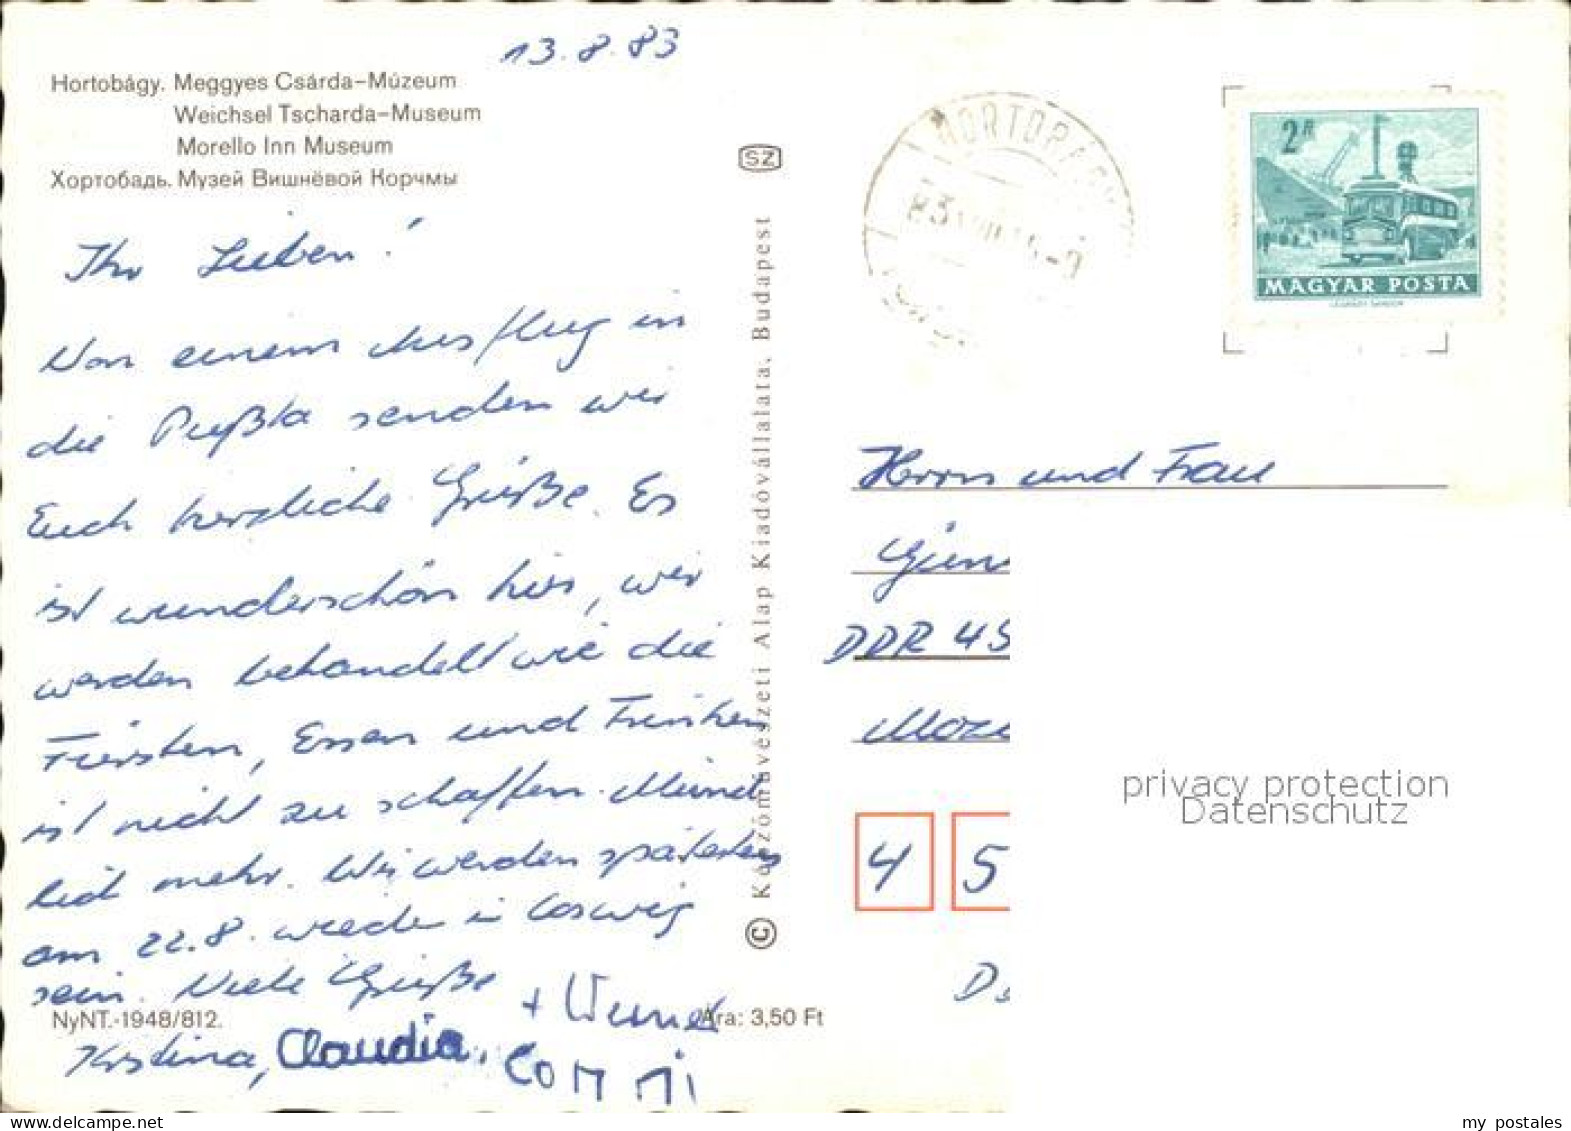 13.8.83
Hortobágy. Meggyes Csárda-Múzeum
Weichsel Tscharda-Museum
Morello Inn Museum
Хортобадь. Музей Вишнёвой Корчмы
Ihr Lieben!
Von einem Ausflug in
die Pußta senden wir
Euch herzliche Grüße. Es
ist wunderschön hier, wir
werden behandelt wie die
Fürsten, Essen und Trinken
ist nicht zu schaffen. Münd
lich mehr. Wir werden spätestens
am 22.8. wieder in Coswig
sein. Viele Grüße
+ Werner
Kristina, Claudia,
Conni
NyNT.-1948/812.
Ára: 3,50 Ft
SZ
© Képzőművészeti Alap Kiadóvállalata, Budapest
HORTOBÁGY
2 Ft
MAGYAR POSTA
Herrn und Frau
DDR 45
4 5
privacy protection
Datenschutz
my_postales